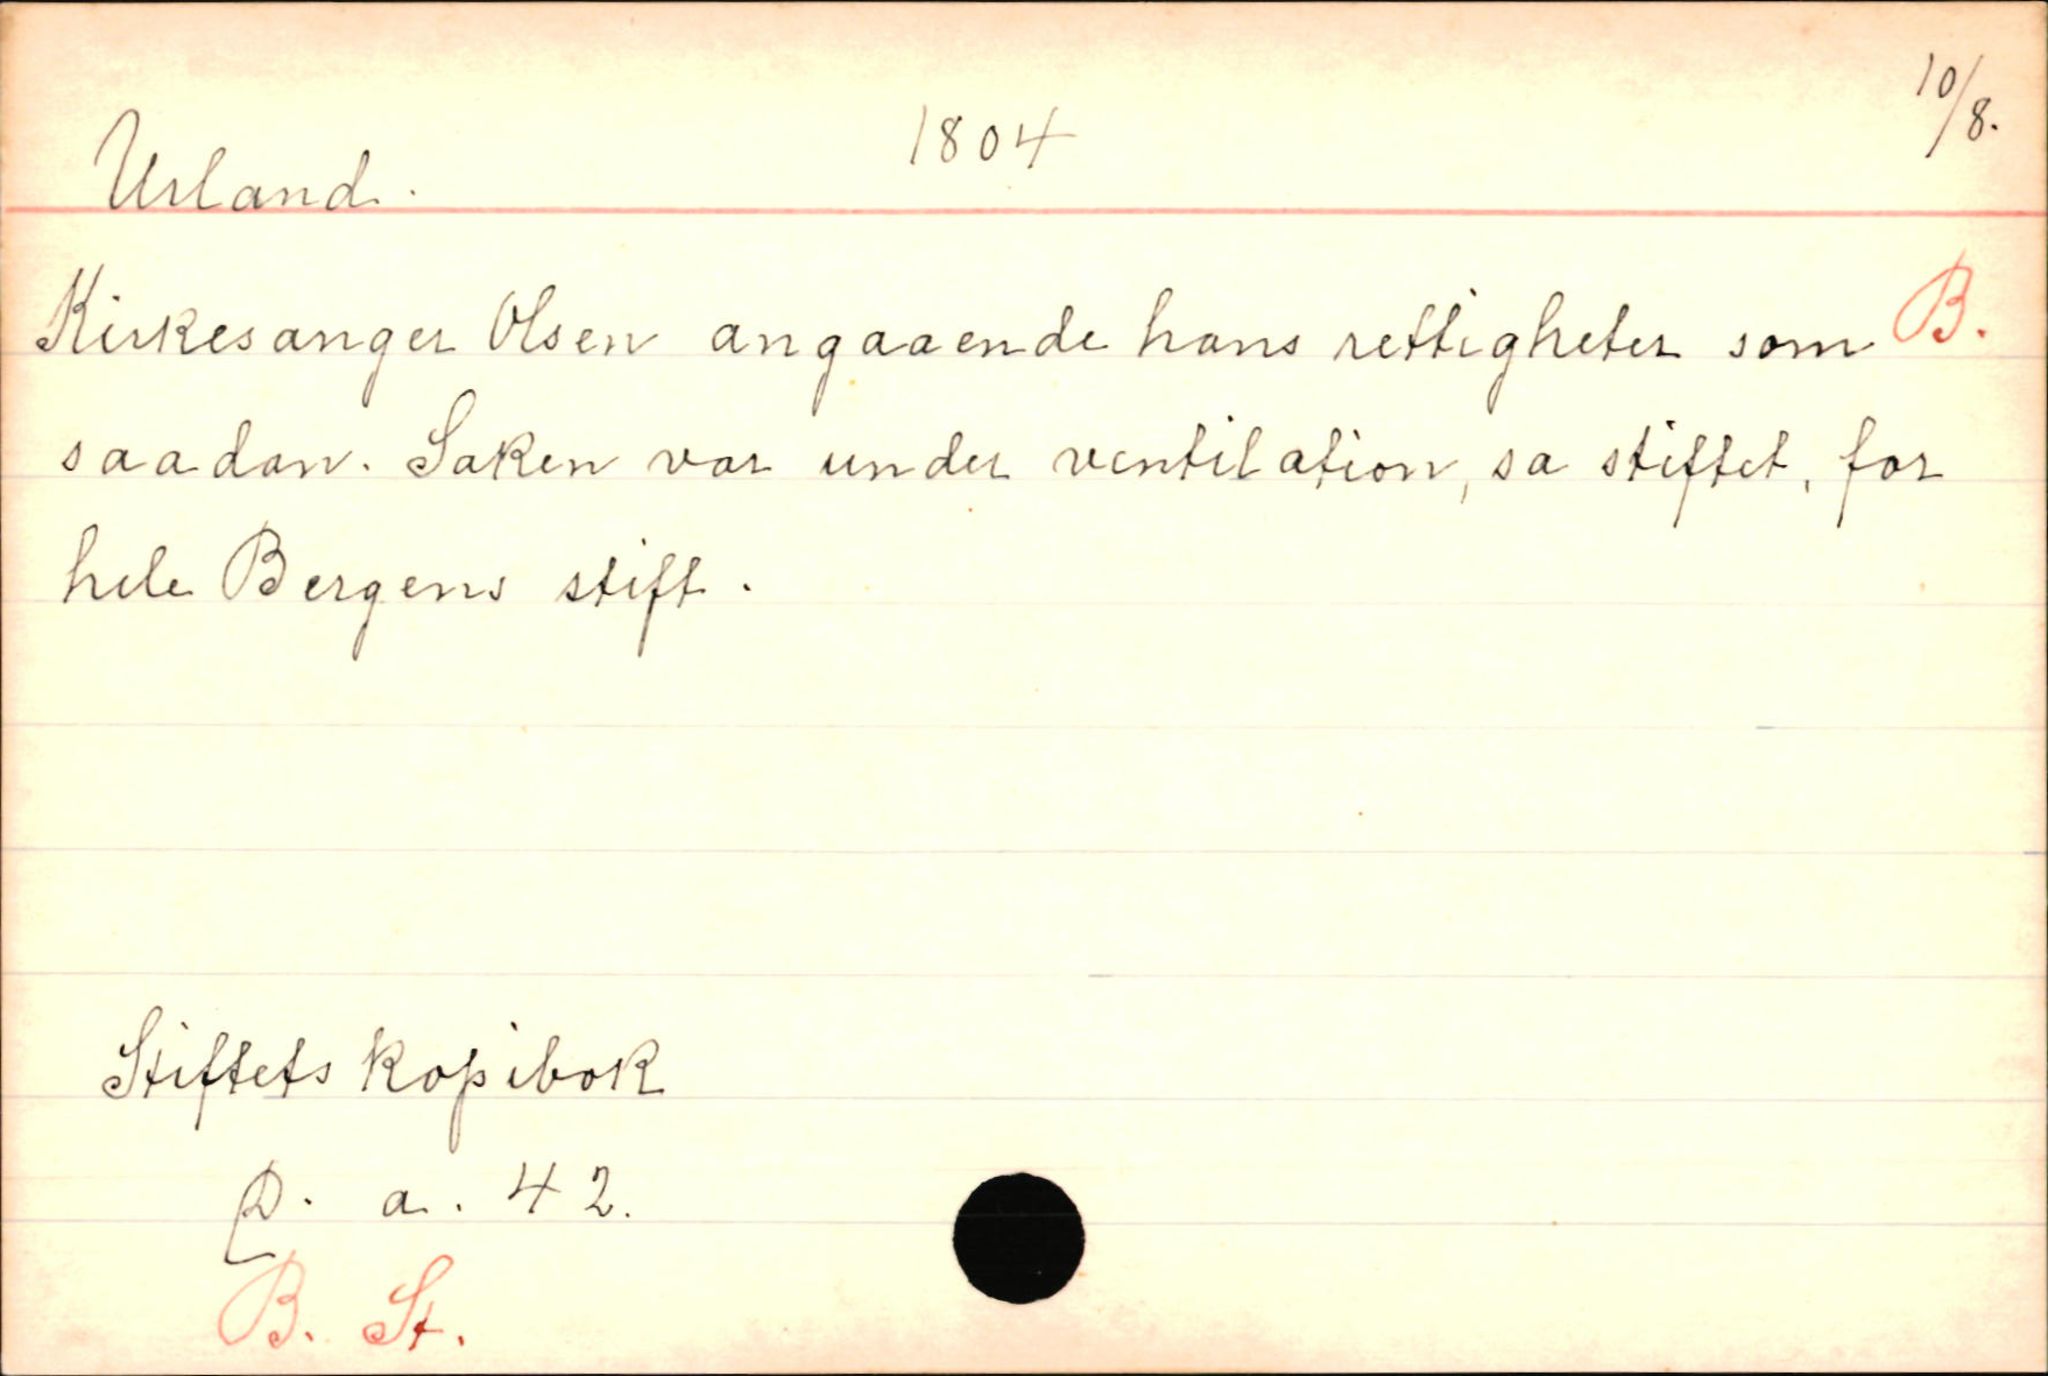 Urland. 1804 10/8.
Kirkesanger Olsen angaaende hans rettigheter som B.
saadan. Saken var under ventilation, sa stiftet, for
hele Bergens stift.
Stiftets kopibok
a. 42.
B. St.